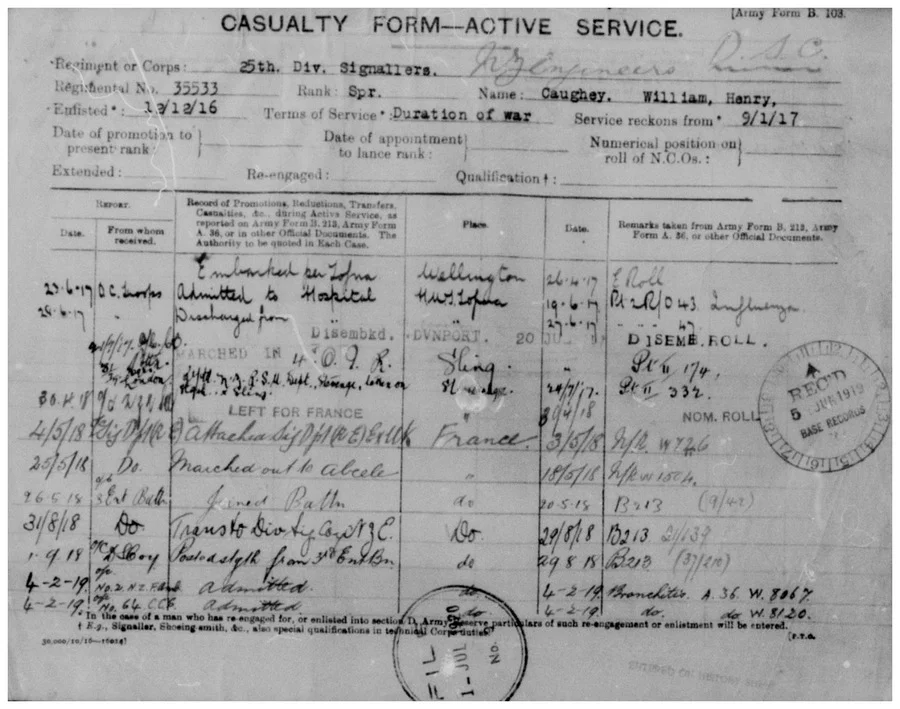 [Army Form B. 103.
CASUALTY FORM—ACTIVE SERVICE.
Regiment or Corps: 25th. Div. Signallers. NZ Engineers D.S.C.
Regimental No. 35533 Rank: Spr. Name: Caughey. William, Henry,
Enlisted*: 12/12/16 Terms of Service*: Duration of war Service reckons from* 9/1/17
Date of promotion to present rank: Date of appointment to lance rank: Numerical position on roll of N.C.Os.:
Extended: Re-engaged: Qualification†:
REPORT. Date. From whom received. Record of Promotions, Reductions, Transfers, Casualties, &c., during Active Service, as reported on Army Form B. 213, Army Form A. 36, or in other Official Documents. The Authority to be quoted in Each Case. Place. Date. Remarks taken from Army Form B. 213, Army Form A. 36, or other Official Documents.
Embarked per Tofua Wellington 26-4-17 E Roll
23-6-17 O.C. Troops Admitted to Hospital HMS Tofua 19-6-17 Pt 2R/O 43 Influenza
28-6-17 " Discharged from " " 27-6-17 " " 47
Disembkd. DVNPORT. 20 JUL DISEMB. ROLL.
MARCHED IN Sling. " Pt II 174,
London 24/7/17. Pt II 332.
30.4.18 LEFT FOR FRANCE " 30/4/18 NOM. ROLL
4/5/18 Attached Sig Dpt (RE) France. 3/5/18 N/R W726
25/5/18 Do. Marched out to Abeele " 18/5/18 N/R W1504.
26.5.18 3 Ent Battn Joined Battn do 20.5.18 B213 (9/42)
31/8/18 Do Trans to Div Sig Coy N Z E. Do. 29/8/18 B213 21/139
1.9.18 O/C D S Coy Posted as from 3rd Ent Bn do 29 8 18 B213
4-2-19. No. 2. N.Z. F Amb admitted do. 4-2-19. Bronchitis. A.36. W. 8067.
4-2-19. No. 64. C.C.S. admitted do 4-2-19. do. do W. 8120.
* In the case of a man who has re-engaged for, or enlisted into section D, Army Reserve particulars of such re-engagement or enlistment will be entered.
† E.g., Signaller, Shoeing smith, &c., also special qualifications in technical Corps duties.
[P.T.O.
REC'D 5 JUN 1919 BASE RECORDS
FIL 1-JUL 1920 No.